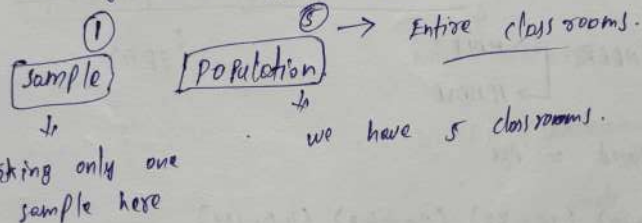 ① ⑤ → Entire classrooms.
Sample Population
we have 5 classrooms.
king only one
sample here